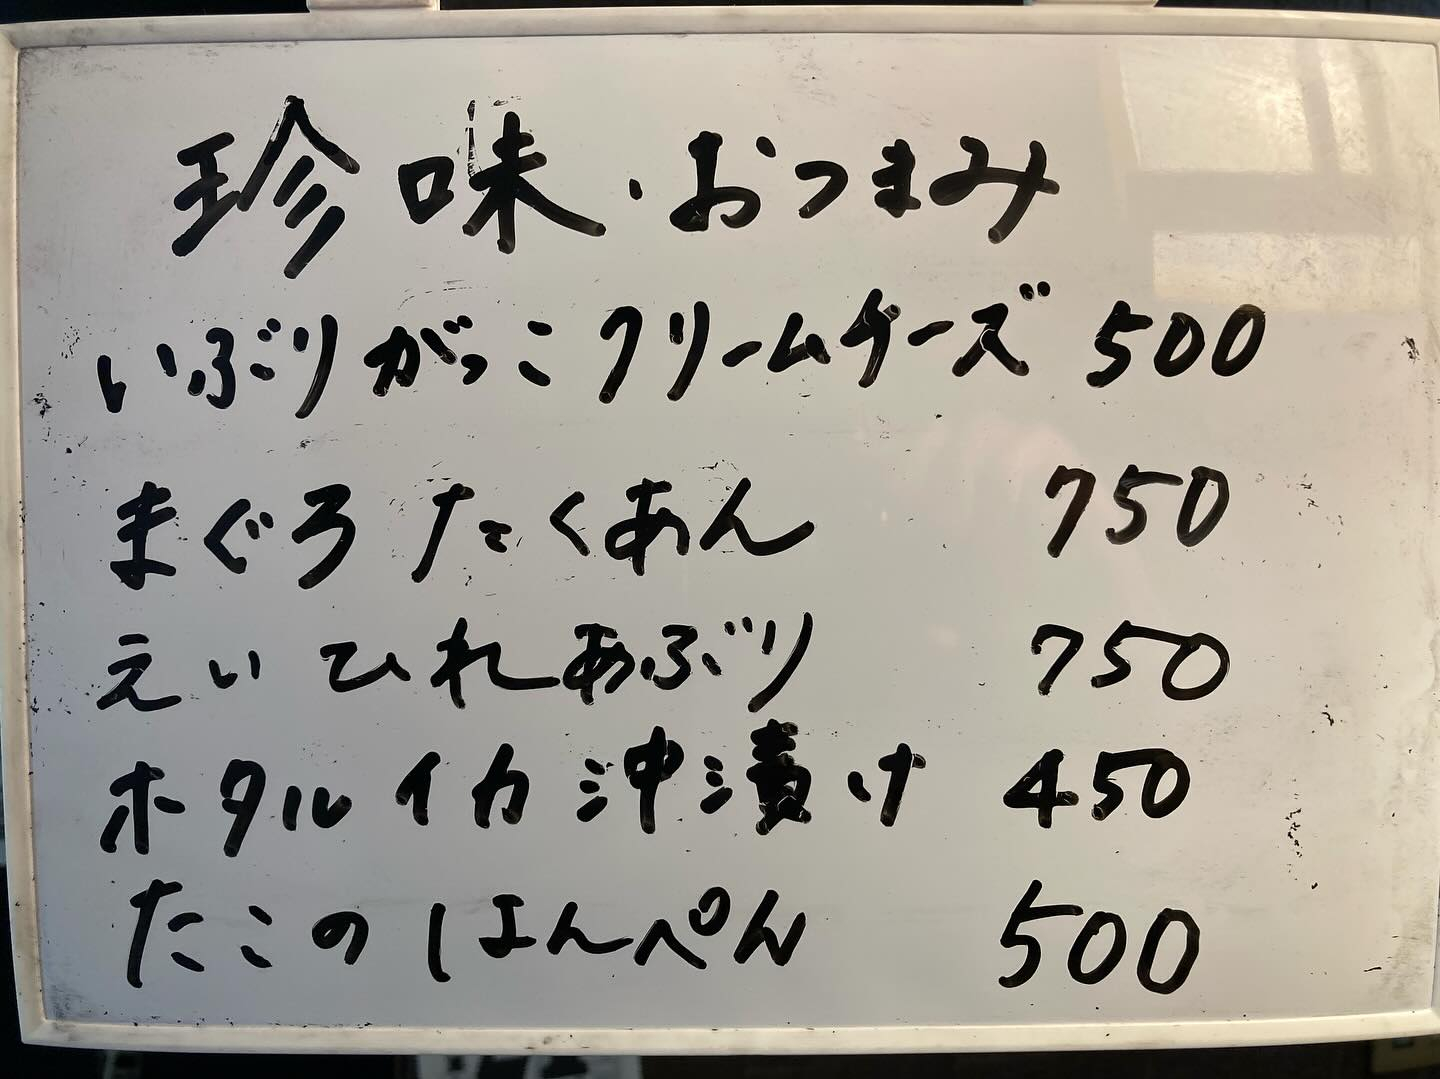 珍味・おつまみ
いぶりがっこクリームチーズ 500
まぐろたくあん 750
えいひれあぶり 750
ホタルイカ沖漬け 450
たこのはんぺん 500